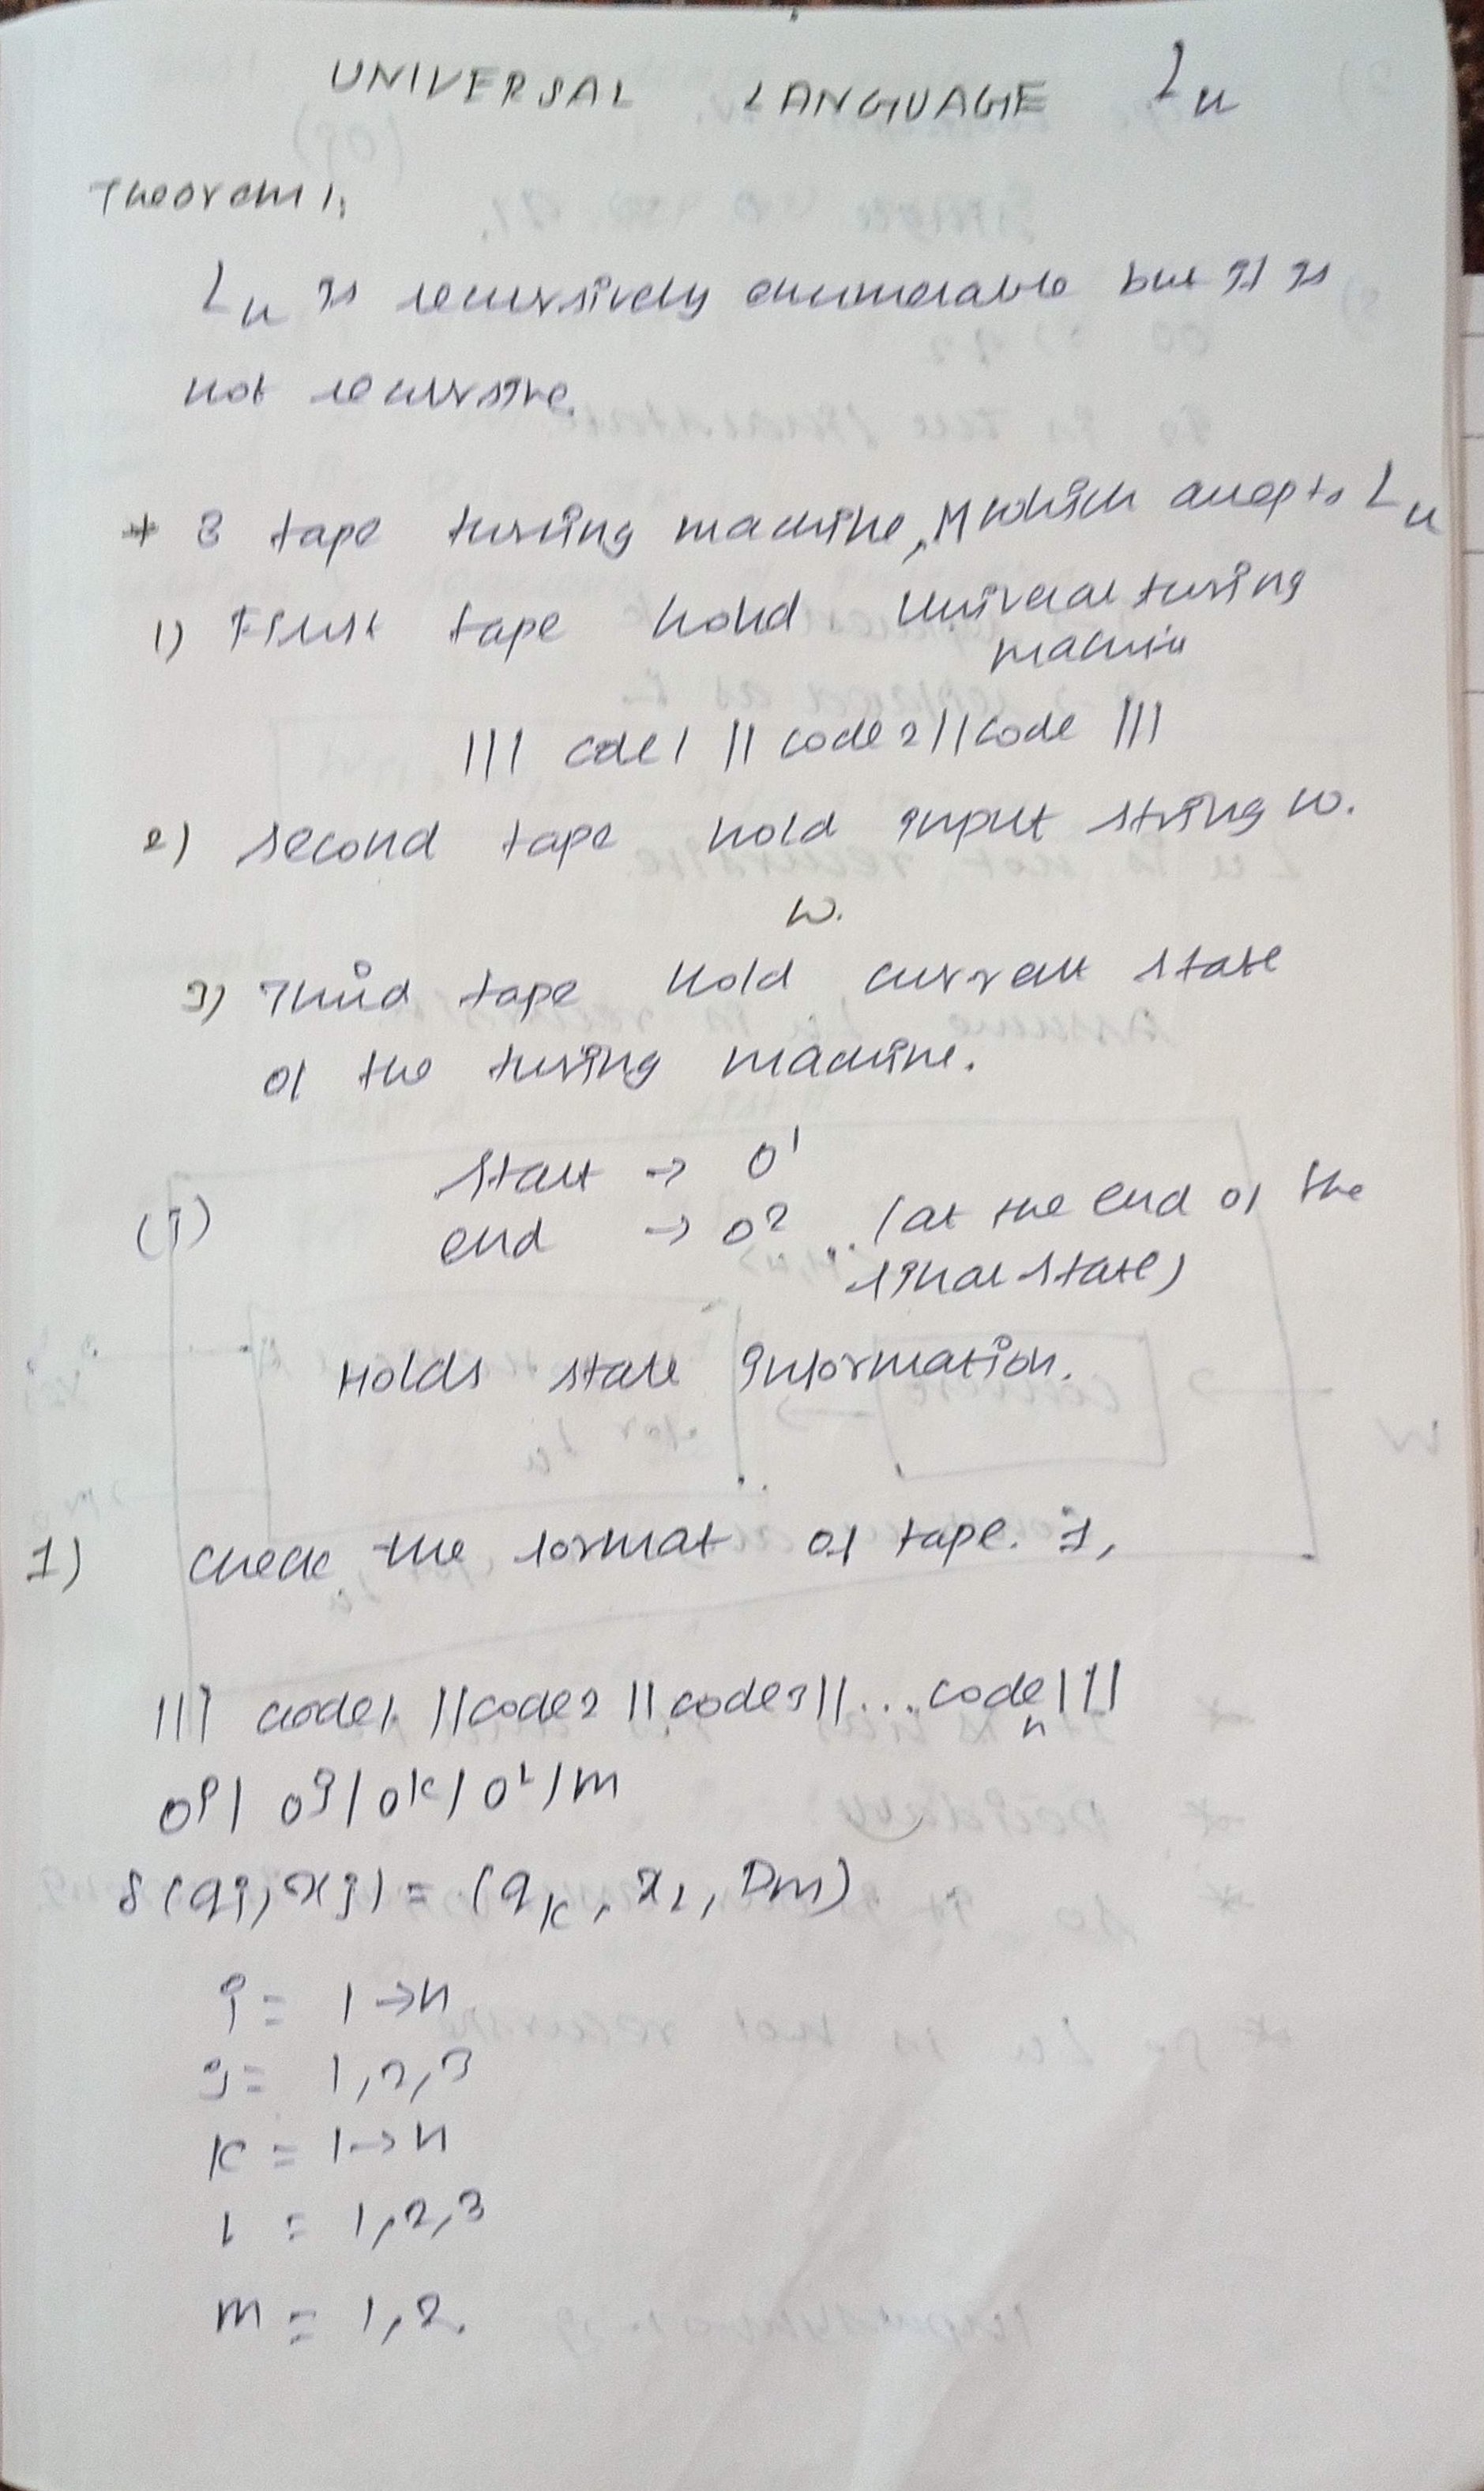 UNIVERSAL LANGUAGE Lu
Theorem 1,
Lu is recursively enumerable but it is
not recursive.
* 3 tape turing machine, M which accepts Lu
1) First tape hold Universal turing
machine
111 code 1 11 code 2 11 code 111
2) Second tape hold input string w.
w.
3) Third tape hold current state
of the turing machine.
start → 0¹
(i)
end → 0² .. (at the end of the
final state)
Holds state information.
1) Check the format of tape. 1,
111 code 1 11 code 2 11 code 3 11 ... code n 111
0ⁱ 1 0ʲ 1 0ᵏ 1 0ˡ 1 m
δ(qi, xj) = (qk, xl, Dm)
i = 1 → n
j = 1,2,3
k = 1 → n
l = 1,2,3
m = 1,2.